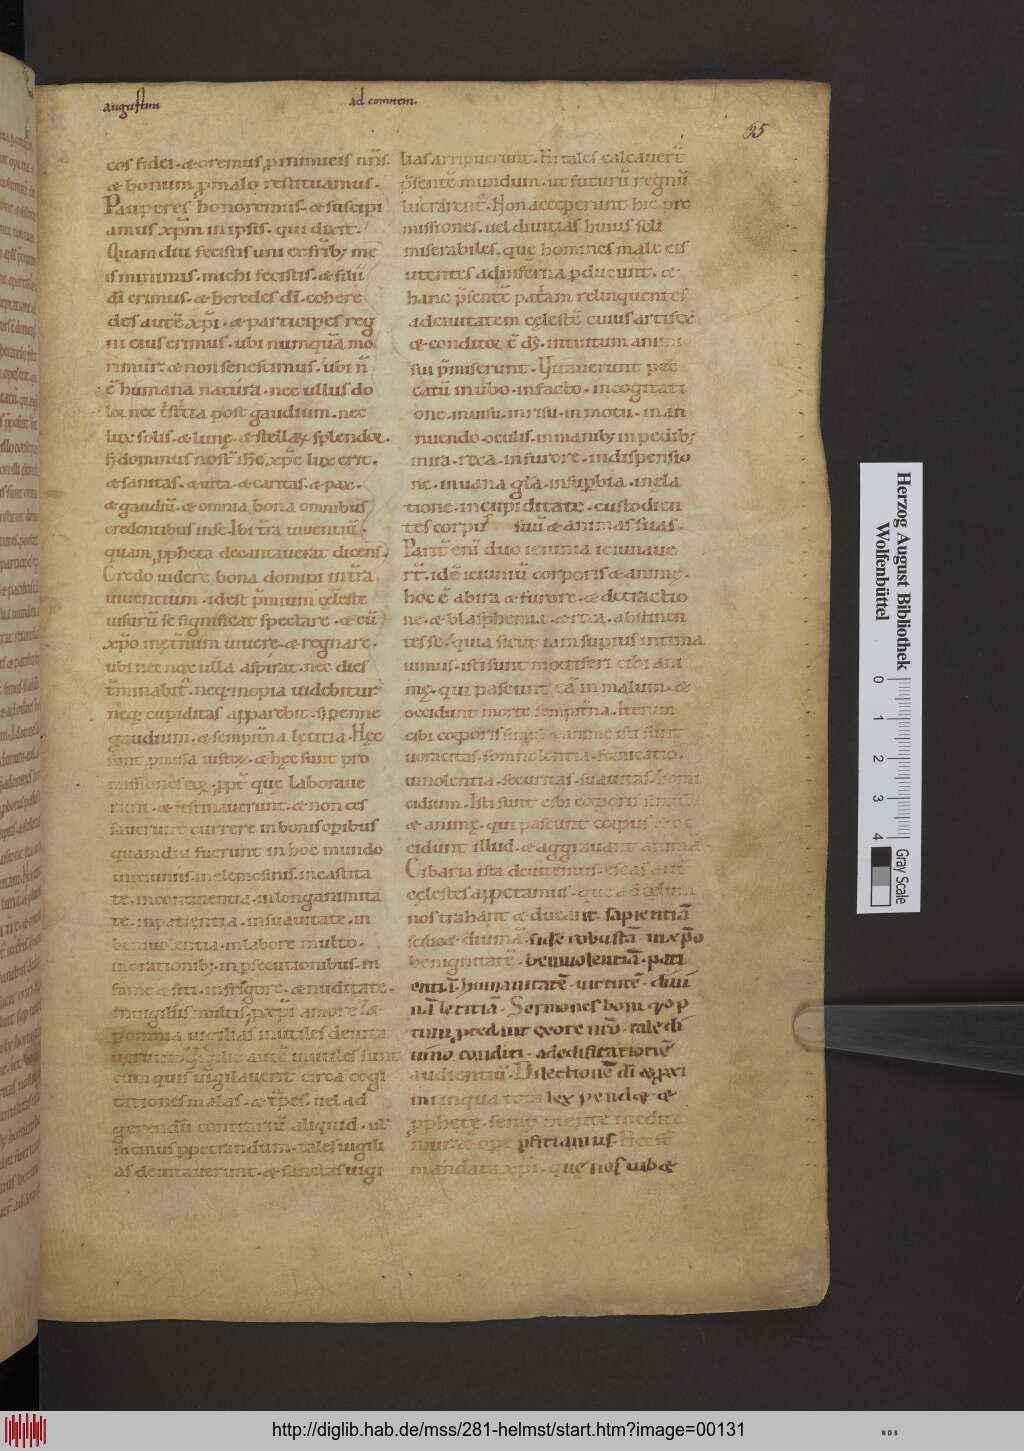 augustini
ad comitem.
65
cos fidei · & oremus ꝓ inimicis nr̄is.
& bonum ꝓ malo restituamus ·
Pauperes honoremus · & suscipi
amus xp̄m in ipsis · qui dixit ·
Quam diu fecistis uni ex frīb; me
is minimis · michi fecistis · & filii
dī erimus · & heredes dī · cohere
des autē xp̄i · & participes reg
ni eius erimus · ubi numquā mo
rimur · & non senescimus · ubi n̄
ē humana natura · nec ullus do
lor nec tr̄istitia post gaudium · nec
lux solis · & lunę · & stellaꝝ splendor ·
sʒ dominus nost̄ ihc̄ xp̄c lux erit ·
& sanitas · & uita · & caritas · & pax ·
& gaudiū · & omnia bona omnibus
credentibus in se · Ibi t̄ra uiuentiū ·
quam ꝓpheta decantauerat dicens̄ ·
Credo uidere bona domini in t̄ra
uiuentium · id est p̄mium cęleste
uisurū se significat spectare · & cū
xp̄o in ęt̄num uiuere · & regnare ·
ubi nec nox ulla aspirat · nec dies
t̄minabit᷑ · neq; inopia uidebitur ·
neq; cupiditas apparebit · sʒ penne
gaudium · & sempit̄na lętitia · Hęc
sunt ꝓmissa iustoꝝ · & hęc sunt pro
missiones eoꝝ · ꝓpt̄ que laboraue
runt · & festinauerunt · & non ces
sauerunt currere in bonis operibus
quamdiu fuerunt in hoc mundo
in ieiuniis · in elemosinis · in castita
te · in continentia · in longanimita
te · in patientia · in suauitate · in
beniuolentia · in labore multo ·
in orationib; · in ꝑsecutionibus · in
fame & siti · in frigore · & nuditate ·
in uigiliis multis · ꝓ xp̄i amore · &
omnia uigilias inutiles deuita
uerunt · Vigilie autē inutiles sunt
cum quis uigilauerit circa cogi
tationes malas · & t̄pes · uel ad
gerendū contrariū aliquid · ul̄
facinus ꝑpetrandum · tales uigili
as deuitauerunt · & sanctas uigi
lias arripuerunt · Hi tales calcauer̄t
p̄sentē mundum · ut futurū regnū
lucrarent᷑ · Non acceperunt hic pro
missiones · uel diuitias huius scl̄i
miserabiles · que homines male eis
utentes ad inferna ꝑducunt · &
hanc p̄sentē pat̄am relinquentes
ad ciuitatem cęlestē cuius artifex
& conditor ē dʒ · intuitum animi
sui p̄miserunt · Vitauerunt pec
catū in ūbo · in facto · in cogitati
one · in uisu · in risu · in motu · in an
nuendo oculis · in manib; in pedib;
in ira · rixa · in furore · in dispensio
ne · in uana gl̄a · in suꝑbia · in ela
tione · in cupiditate · custodien
tes corpus suū & animas suas ·
Parit̄ eni duo ieiunia ieiunaue
rt̄ · idē ieiuniū corporis & animę ·
hoc ē ab ira & furore · & detractio
ne · & blasphemia · & rixa · abstinen
tes se · quia sicut iam supius intima
uimus · isti sunt mortiferi cibi ani
mę · qui pascunt eā in malum · &
occidunt morte sempit̄na · Iterum
cibi corporis simul & anime isti sunt
uoracitas · somnolentia · fornicatio ·
uinolentia · securitas · suauitas · homi
cidium · Isti sunt cibi corporis simul
& animę · qui pascunt corpus & oc
cidunt illud · & aggrauant animā ·
Cibaria ista deuitemus · escas aut̄
cęlestes appetamus · que ad cęlum
nos trahant & ducant · sapientiā
scilicet diuinā · fidē robustā · in xp̄o
benignitatē · beniuolentiā · pati
entiā · humanitatē · uirtutē · diui
nā letitiā · Sermones boni qͦqͦ ꝓ
tinꝰ ꝓcedant ex ore nr̄o · tale di
uino conditi · ad edificationē
audientiū · Dilectione dī & ꝓxi
mi in qua tota lex pend& · &
ꝓphetę · semꝑ mente medite
mur · & ope ꝑficiamus · Hec st̄
mandata xp̄i · que nos iub&
Herzog August Bibliothek
Wolfenbüttel
0 1 2 3 4
Gray Scale
http://diglib.hab.de/mss/281-helmst/start.htm?image=00131